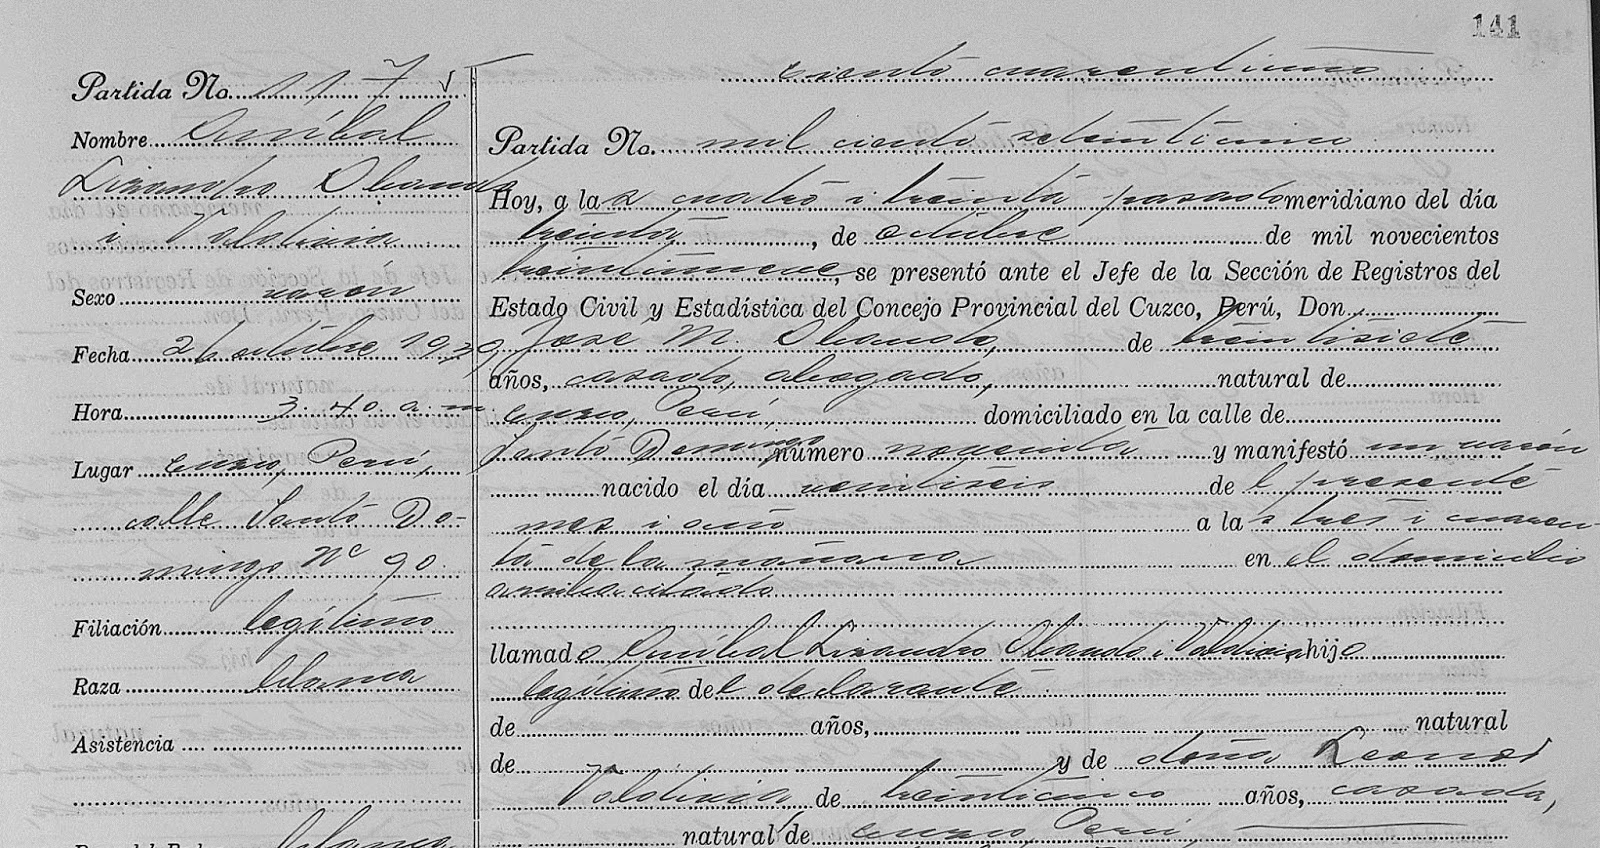 141
ciento cuarentiuno
Partida No. 117
Nombre Aníbal
Lizandro Obando
i Valdivia
Sexo varón
Fecha 26 octubre 1939
Hora 3.40 a.m.
Lugar Cuzco, Perú,
calle Santo Do-
mingo No 90.
Filiación legítimo
Raza blanca
Asistencia
blanca
Partida No. mil ciento setenticinco
Hoy, a las cuatro i treinta pasado meridiano del día
treinta, de octubre de mil novecientos
treintinueve, se presentó ante el Jefe de la Sección de Registros del
Estado Civil y Estadística del Concejo Provincial del Cuzco, Perú, Don
Jose M. Obando, de treintisiete
años, casado, abogado, natural de
Cuzco, Perú, domiciliado en la calle de
Santo Domingo número noventa y manifestó un varón
nacido el día ventiseis de l presente
mes i año a las tres i cuaren-
ta de la mañana en el domicilio
arriba citado
llamado Aníbal Lizandro Obando i Valdivia, hijo
legítimo del declarante
de años, natural
de y de doña Leonor
Valdivia, de treinticinco años, casada,
natural de Cuzco, Perú